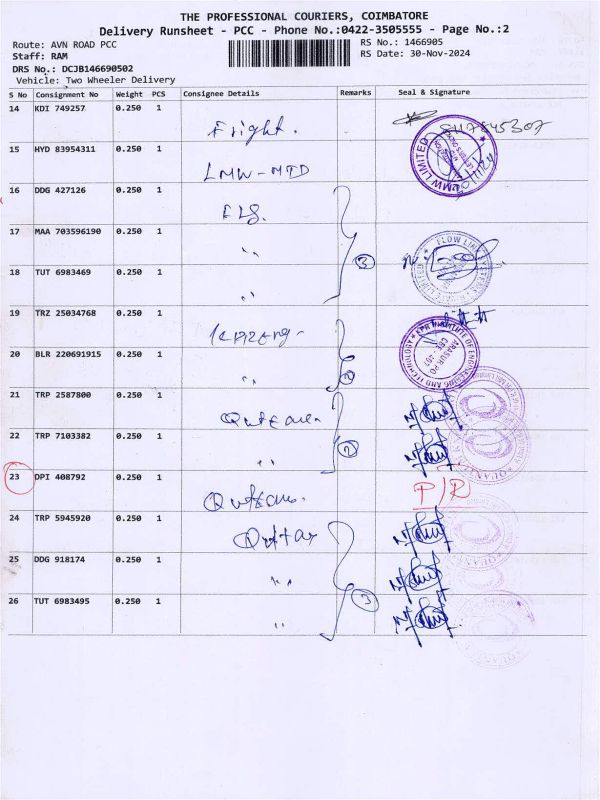 THE PROFESSIONAL COURIERS, COIMBATORE
Delivery Runsheet - PCC - Phone No.:0422-3505555 - Page No.:2
Route: AVN ROAD PCC
RS No.: 1466905
Staff: RAM
RS Date: 30-Nov-2024
DRS No.: DCJB146690502
Vehicle: Two Wheeler Delivery
S No Consignment No Weight PCS Consignee Details Remarks Seal & Signature
14 KDI 749257 0.250 1
15 HYD 83954311 0.250 1 LMW-MTD
LMW LIMITED
16 DDG 427126 0.250 1
17 MAA 703596190 0.250 1 ,, 3
FLOW LINK SYSTEMS
18 TUT 6983469 0.250 1 ,,
19 TRZ 25034768 0.250 1
KPR INSTITUTE OF ENGINEERING AND TECHNOLOGY
ARASUR PO
CBE - 407
20 BLR 220691915 0.250 1 ,, 2
21 TRP 2587800 0.250 1
22 TRP 7103382 0.250 1 ,, 2
23 DPI 408792 0.250 1 P/R
24 TRP 5945920 0.250 1
25 DDG 918174 0.250 1 ,,
26 TUT 6983495 0.250 1 ,, 3